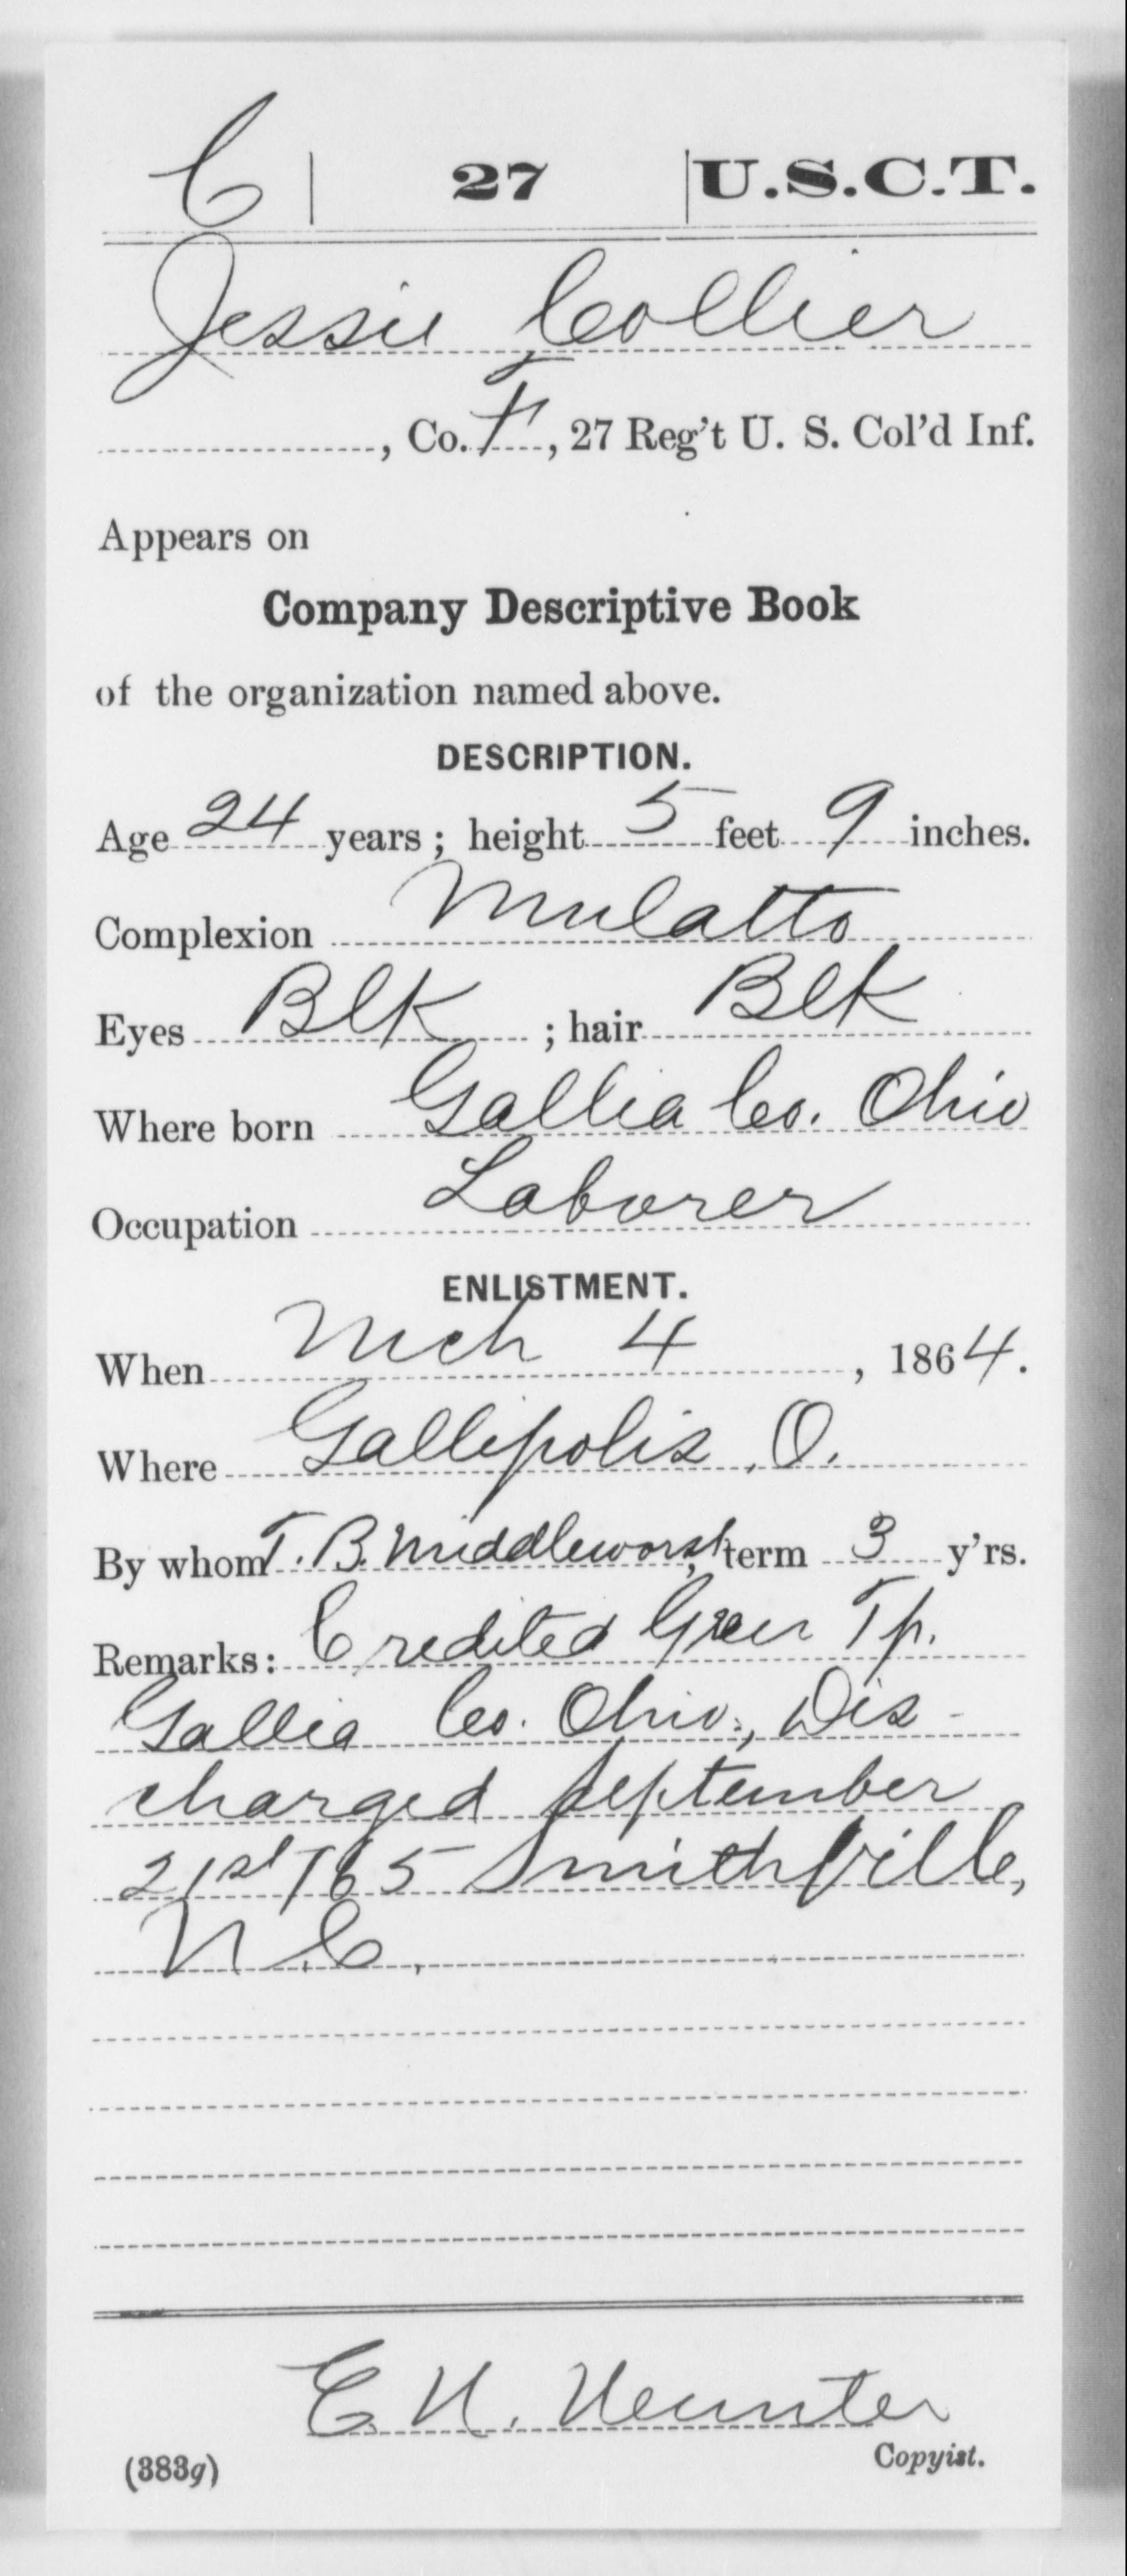 C | 27 | U.S.C.T.
Jessie Collier
, Co. F, 27 Reg't U. S. Col'd Inf.
Appears on
Company Descriptive Book
of the organization named above.
DESCRIPTION.
Age 24 years; height 5 feet 9 inches.
Complexion Mulatto
Eyes Blk ; hair Blk
Where born Gallia Co. Ohio
Occupation Laborer
ENLISTMENT.
When Mch 4, 1864.
Where Gallipolis, O.
By whom T. B. Middleworst, term 3 y'rs.
Remarks: Credited Green Tp.
Gallia Co. Ohio., Dis-
charged September
21st/65 Smithville,
N.C.
E. N.
Copyist.
(383g)